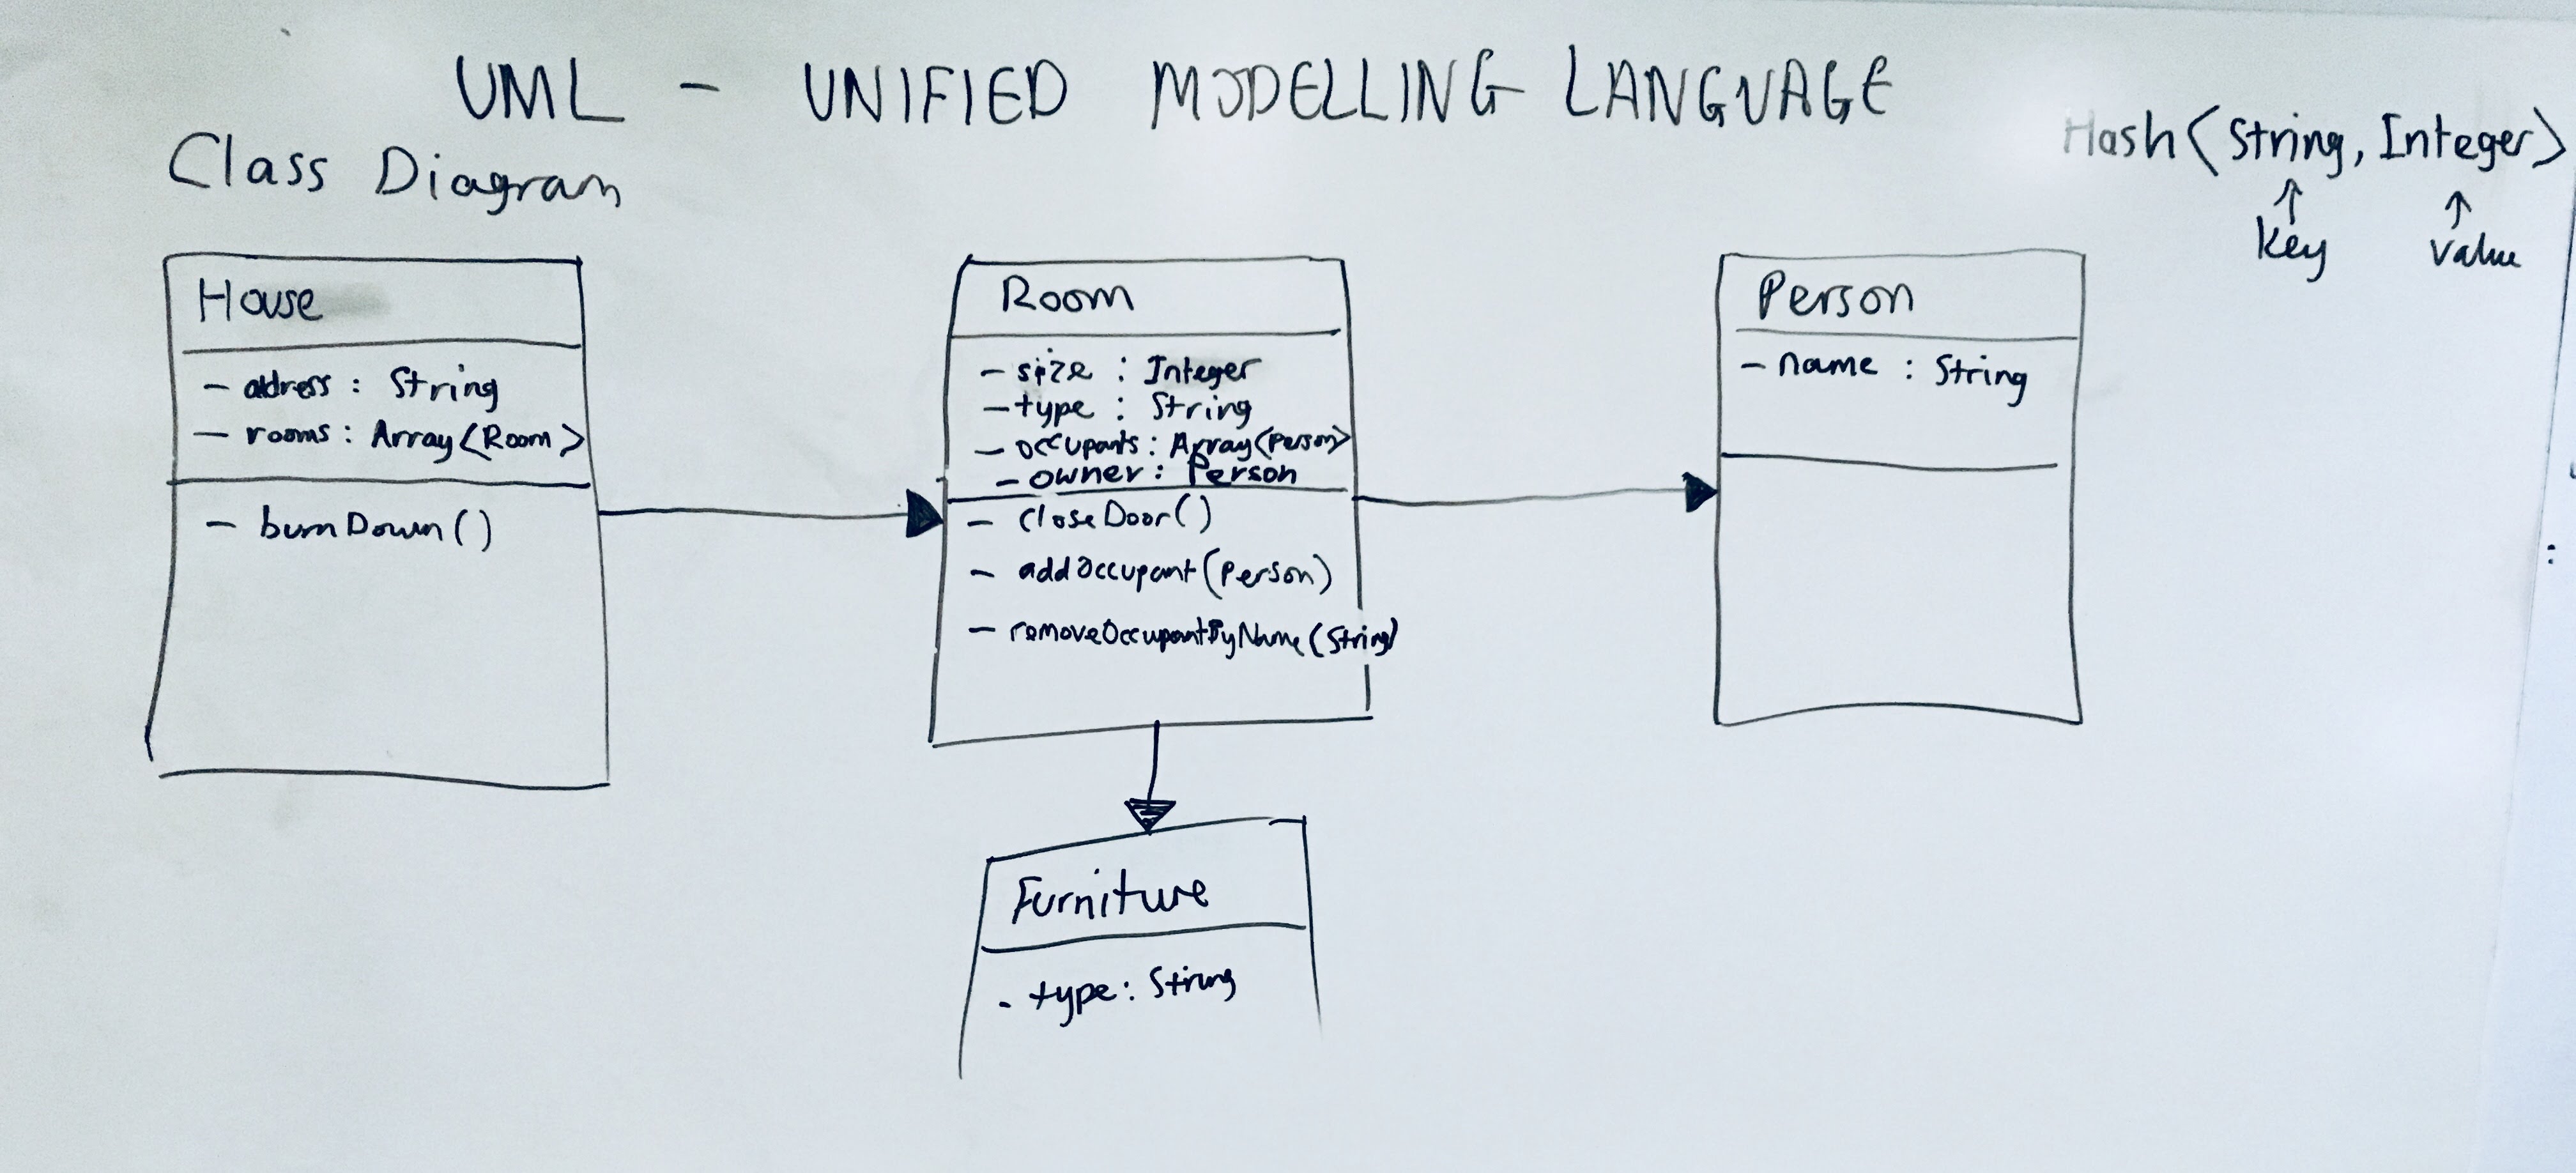 UML - UNIFIED MODELLING LANGUAGE
Class Diagram
Hash<String, Integer>
↑ ↑
key value
House
- adress : String
- rooms : Array<Room>
- burnDown()
Room
- size : Integer
- type : String
- occupants : Array<Person>
- owner : Person
- closeDoor()
- addOccupant(Person)
- removeOccupantByName(String)
Person
- name : String
Furniture
- type : String
: